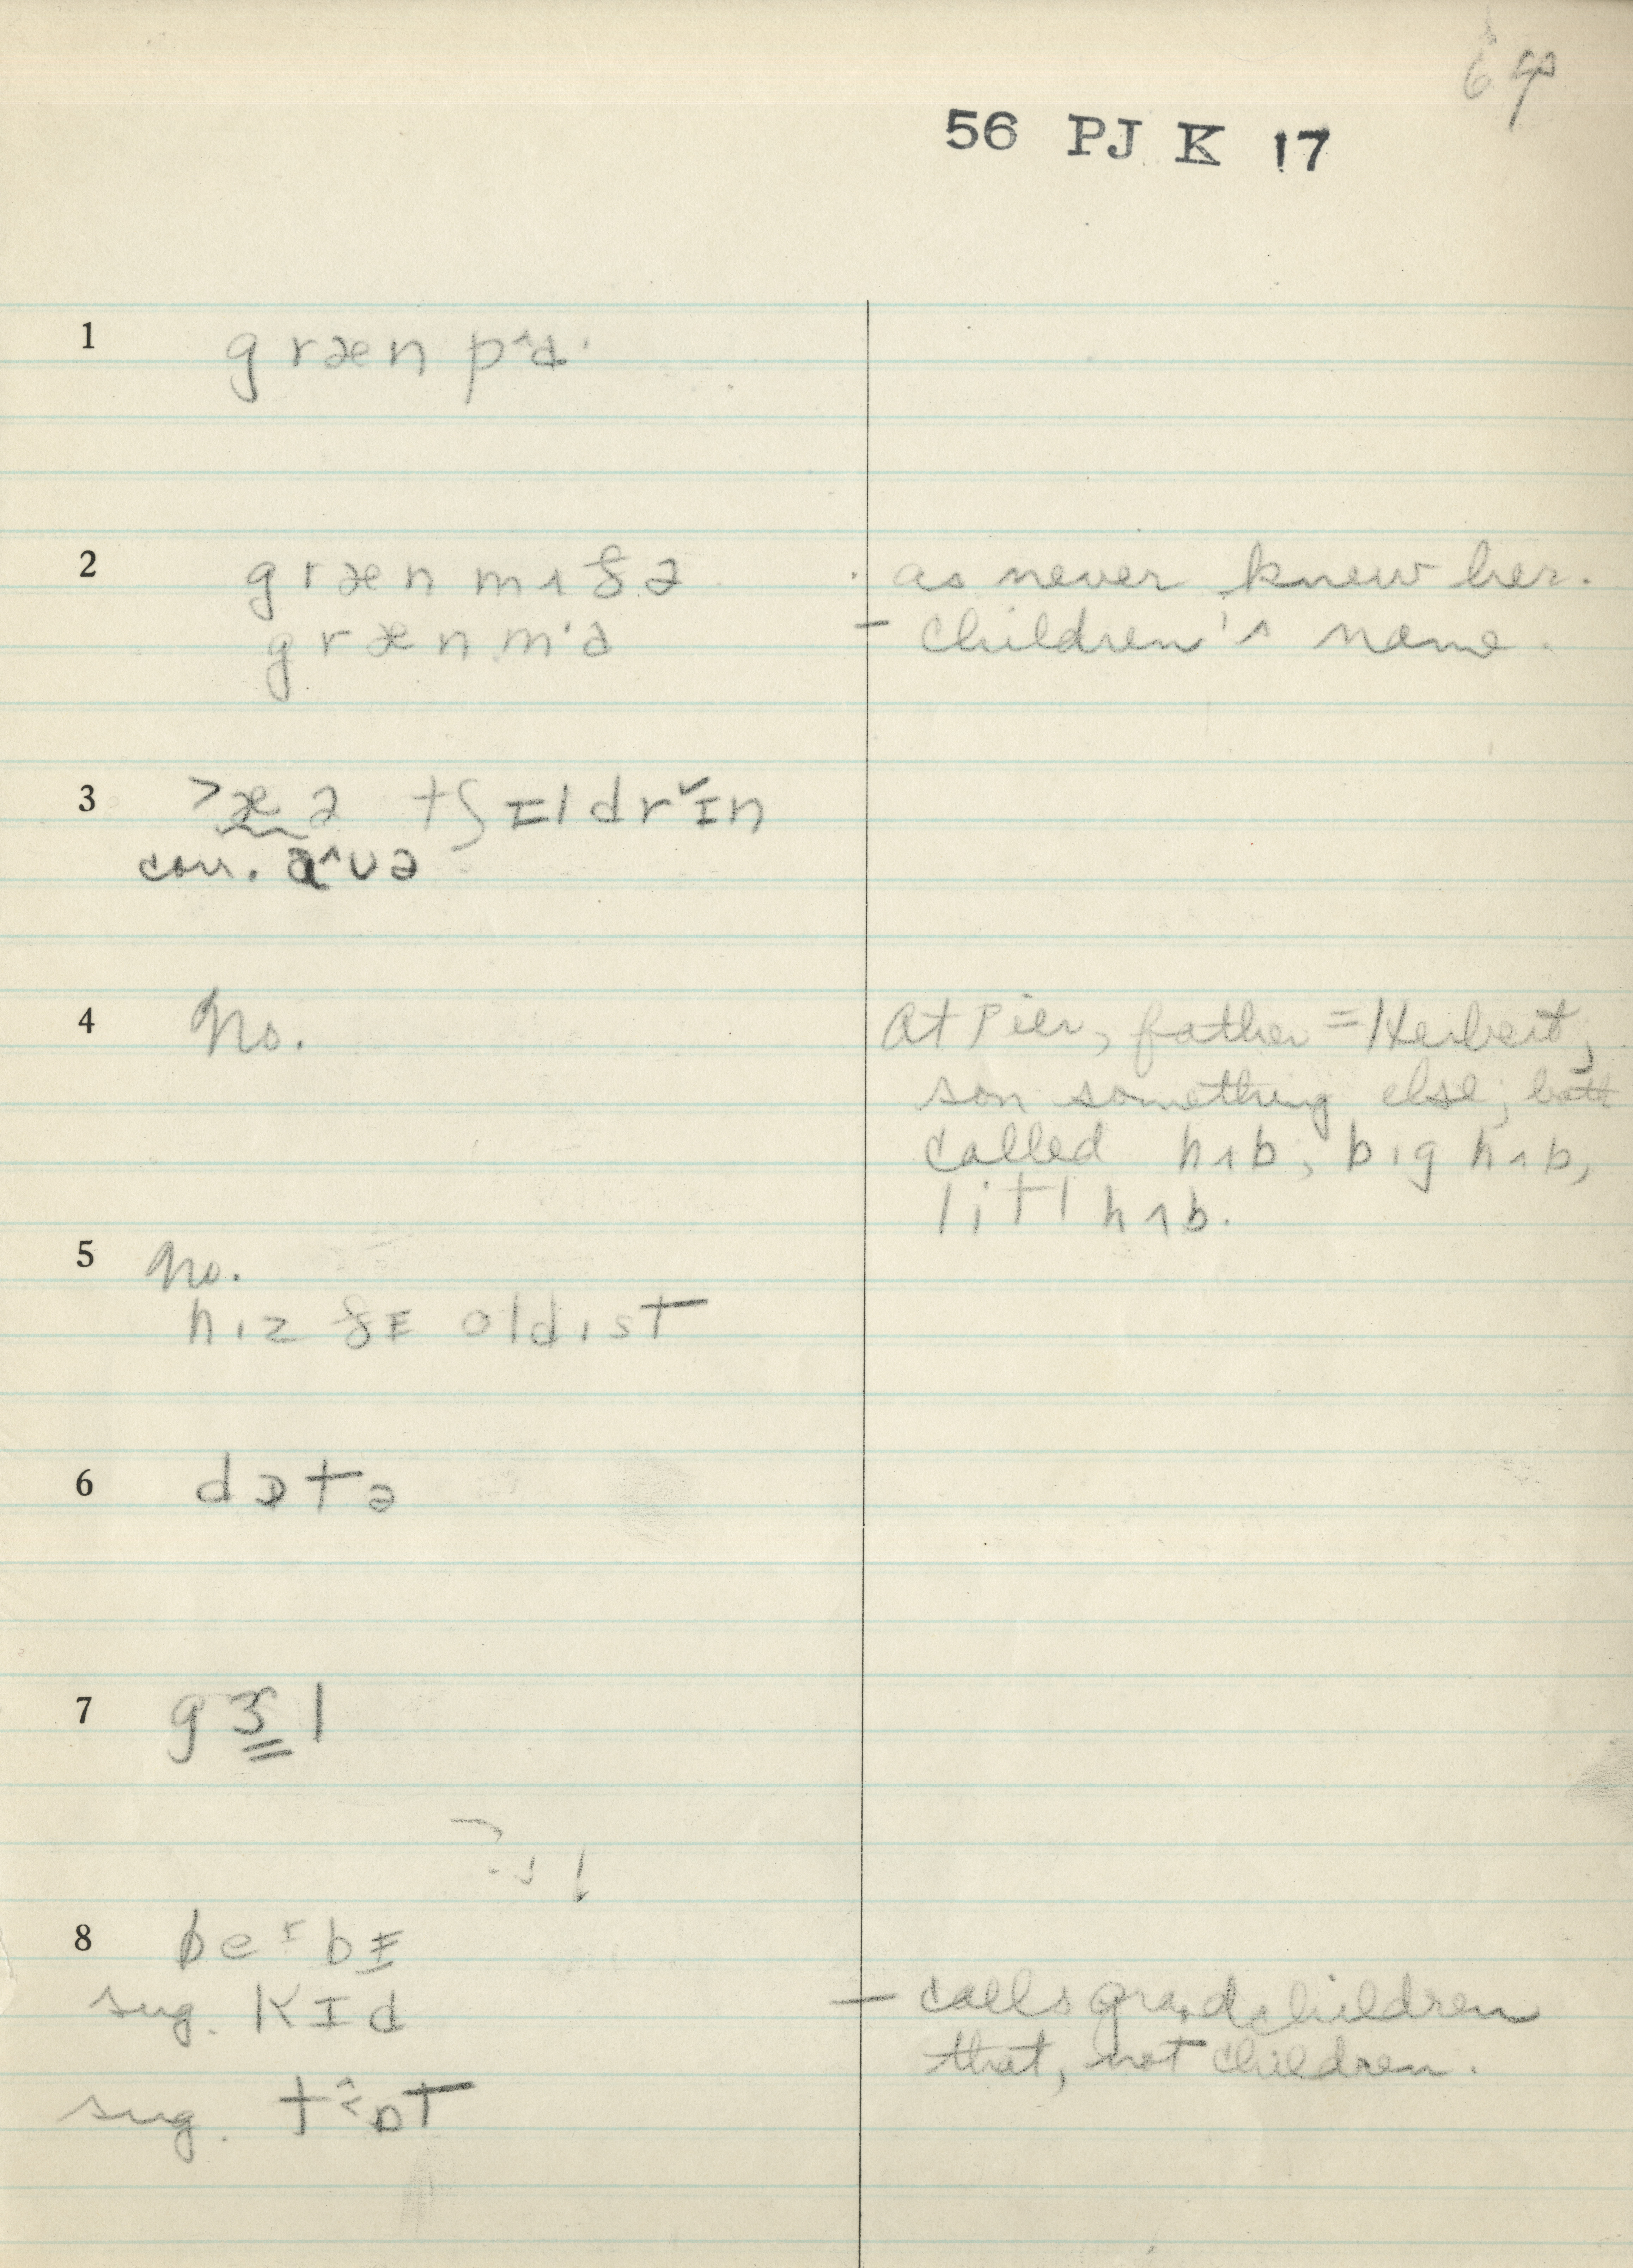 56 PJ K 17
1 græn pˆɑ·
2 græn mʌðə · as never knew her.
græn m·ə – children's name.
3 >æ ə tʃɪldrˇɪn
corr. ɑˆʊə
4 No. At Pier, father = Herbert,
son something else; both
called hʌb, bɪg hʌb,
litl hʌb.
5 No.
hiz ðɪ oldist
6 dɒtə
7 gɝl
8 beɪbɪ
sug. kɪd – calls grandchildren
that, not children.
sug. tˆ<ɒt